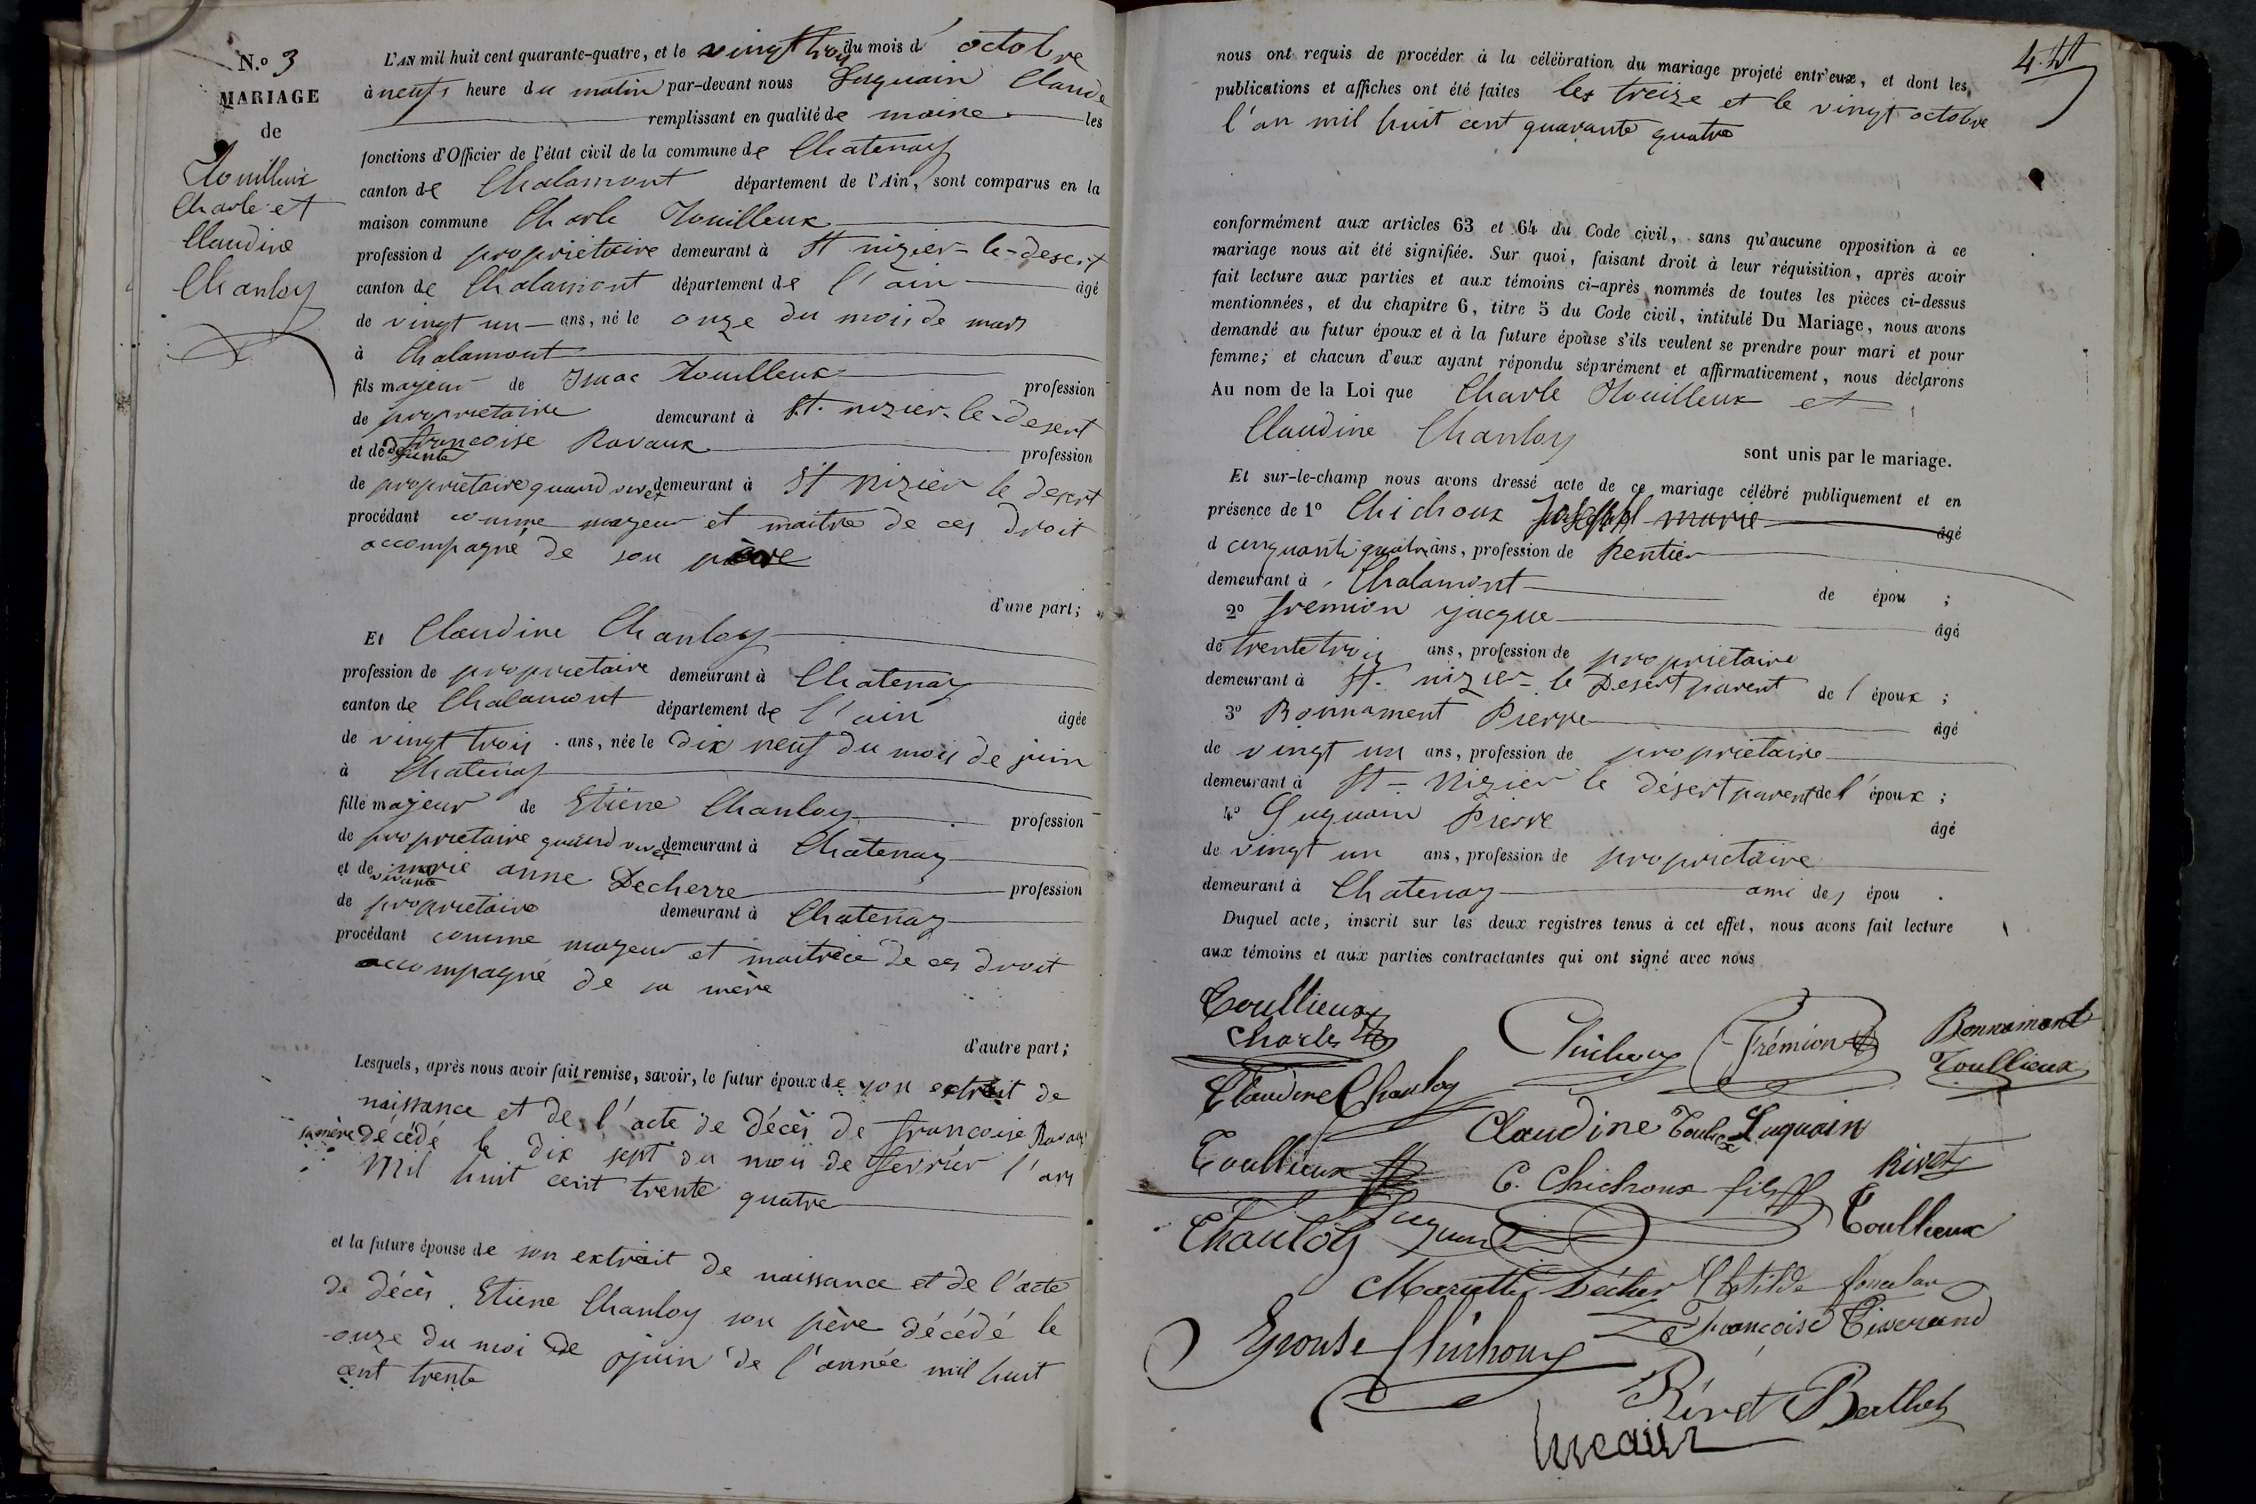 N.º 3
MARIAGE
de
Touilleux
Charle et
Claudine
Chanloy
L'AN mil huit cent quarante-quatre, et le vingt trois du mois d'octobre
à neufs heure du matin par-devant nous Luquain Claude
remplissant en qualité de maire les
fonctions d'Officier de l'état civil de la commune de Chatenay
canton de Chalamont département de l'Ain, sont comparus en la
maison commune Charle Touilleux
profession d propriétaire demeurant à St nizier-le-desert
canton de Chalamont département de l'ain âgé
de vingt un ans, né le onze du mois de mars
à Chalamont
fils majeur de Isaac Touilleux profession
de propriétaire demeurant à St. nizier-le-desert
et de défunte françoise Ravaux profession
de propriétaire quand vivet demeurant à St nizier le desert
procédant comme majeur et maitre de ces droit
accompagné de son père
d'une part;
Et Claudine Chanloy
profession de propriétaire demeurant à Chatenay
canton de Chalamont département de l'ain âgée
de vingt trois ans, née le dix neuf du mois de juin
à Chatenay
fille majeur de Etiene Chanloy profession
de propriétaire quand vivet demeurant à Chatenay
et de vivante marie anne Decherre profession
de propriétaire demeurant à Chatenay
procédant comme majeur et maitrece de ces droit
accompagné de sa mère
d'autre part;
Lesquels, après nous avoir fait remise, savoir, le futur époux de son extrait de
naissance et de l'acte de décès de françoise Ravaux
sa mère décédé le dix sept du mois de fevrier l'an
mil huit cent trente quatre
et la future épouse de son extrait de naissance et de l'acte
de décès Etiene Chanloy son père décédé le
onze du moi de juin de l'année mil huit
cent trente
nous ont requis de procéder à la célébration du mariage projeté entr'eux, et dont les
publications et affiches ont été faites les treize et le vingt octobre
l'an mil huit cent quarante quatre
conformément aux articles 63 et 64 du Code civil, sans qu'aucune opposition à ce
mariage nous ait été signifiée. Sur quoi, faisant droit à leur réquisition, après avoir
fait lecture aux parties et aux témoins ci-après nommés de toutes les pièces ci-dessus
mentionnées, et du chapitre 6, titre 5 du Code civil, intitulé Du Mariage, nous avons
demandé au futur époux et à la future épouse s'ils veulent se prendre pour mari et pour
femme; et chacun d'eux ayant répondu séparément et affirmativement, nous déclarons
Au nom de la Loi que Charle Touilleux et
Claudine Chanloy
sont unis par le mariage.
Et sur-le-champ nous avons dressé acte de ce mariage célébré publiquement et en
présence de 1º Chichoux Joseph marie âgé
d cinquante quatre ans, profession de Rentier
demeurant à Chalamont de épou ;
2º fremion jacque âgé
de trente trois ans, profession de propriétaire
demeurant à St. nizier-le Desert parent de l'époux ;
3º Bonnament Pierre âgé
de vingt un ans, profession de propriétaire
demeurant à St-Nizier le désert parent de l'époux ;
4º Luquain Pierre âgé
de vingt un ans, profession de propriétaire
demeurant à Chatenay ami des épou .
Duquel acte, inscrit sur les deux registres tenus à cet effet, nous avons fait lecture
aux témoins et aux parties contractantes qui ont signé avec nous
Toullieux
Charles
Chichoux
Frémion
Bonnamant
Toullieux
Claudine Chanloy
Claudine
Luquain
Toullieux
C. Chichoux fils
Rivet
Chanloy
Toullieux
Mariette Décher
Clotilde
Françoise Tisserand
Epouse Chichoux
Rivet
Berthet